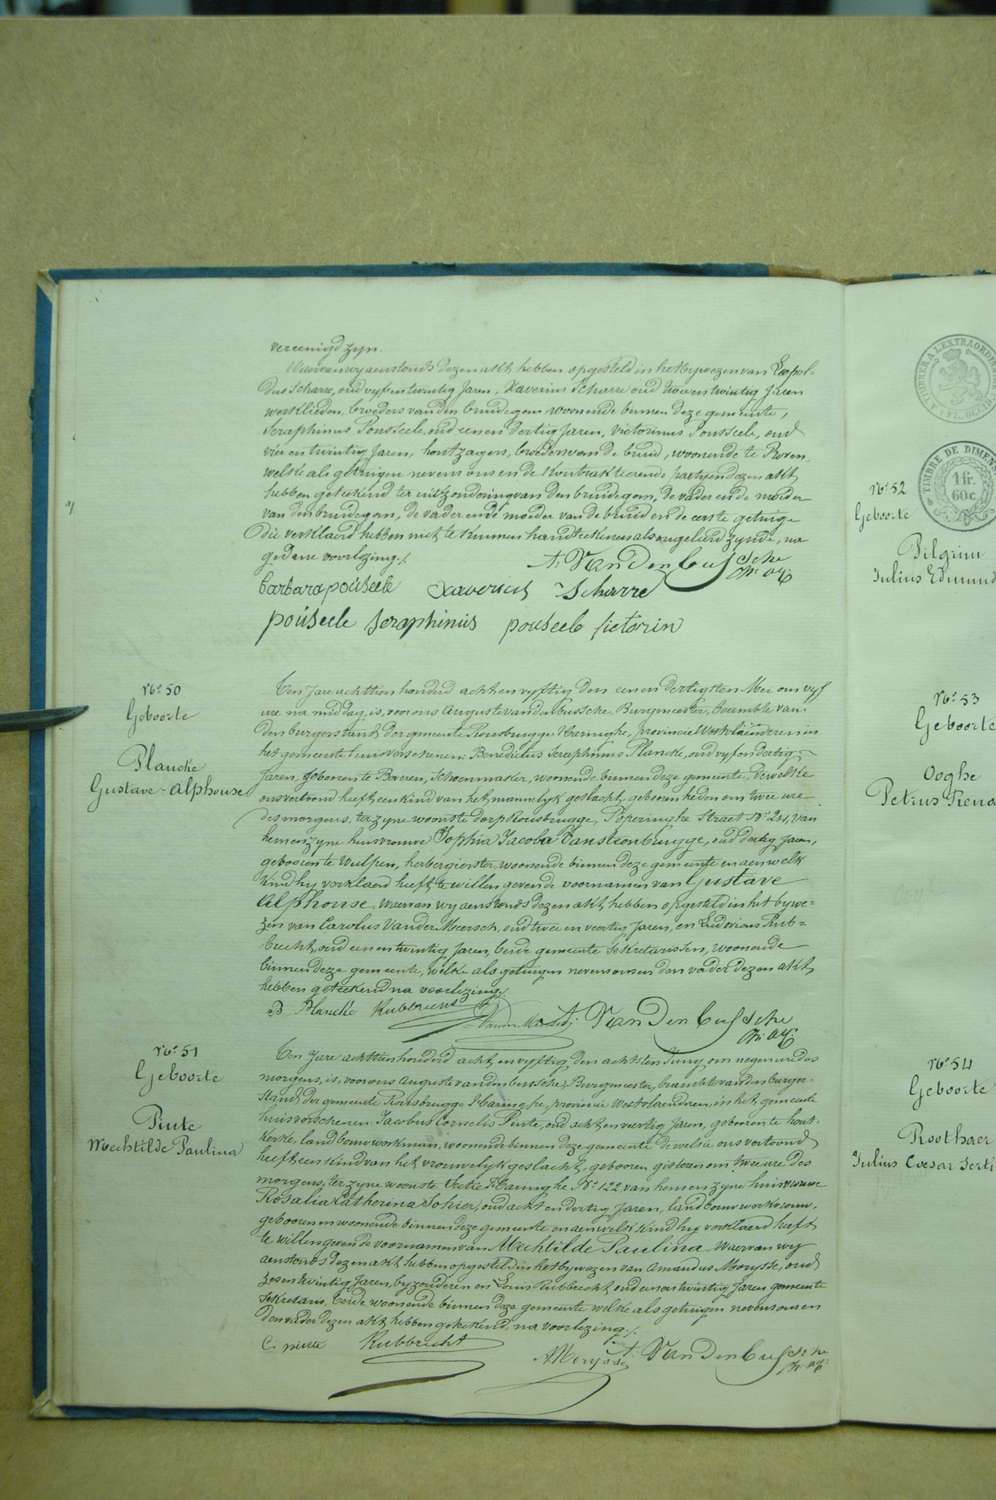 vereenigd zyn.
Waervan wy aenstonds dezen akt hebben opgesteld in het bywezen van Leopol-
dus Scharre, oud vyf en twintig Jaren, Xaverius Scharre oud twee en twintig Jaren
werklieden, broeders van den bruidegom woonende binnen deze gemeente,
Seraphinus Pouseele, oud een en dertig Jaren, Victorinus Pouseele, oud
vier en twintig Jaren, houtzagers, broeders van de bruid, woonende te
welke als getuigen nevens ons en de kontrakteerende partyen dezen akt
hebben geteekend ter uitzondering van den bruidegom, de vader en de moeder
van den bruidegom, de vader en de moeder van de bruid en de eerste getuige
die verklaerd hebben niet te kunnen handteekenen als ongeleerd zynde, na
gedane voorlezing./.
A. VanDenBussche
barbara pouseele xaverius Scharre
pouseele seraphinus pouseele fictorin
N° 50
Geboorte
Plancke
Gustave-Alphonse
Ten jare achttien honderd acht en vyftig den een en dertigsten Mei om vyf
ure na middag, is, voor ons Auguste vanden bussche, Burgmeester, beambte van
den burgerstand der gemeente Rousbrugge-Haringhe, provincie Westvlaenderen in
het gemeente huis verschenen Benedictus Seraphinus Plancke, oud vyf en dertig
Jaren, geboren te Beveren, schoenmaker, woonende binnen deze gemeente, dewelke
ons vertoond heeft een kind van het mannelyk geslacht, geboren heden om twee ure
des morgens, ter zyne woonste dorp Rousbrugge, Poperinghe Straet N° 24, van
hem en zyne huisvrouwe Sophia Jacoba Vansteenbrugge, oud dertig Jaren,
geboren te Wulpen, herbergierster, woonende binnen deze gemeente en aen welk
kind hy verklaerd heeft te willen geven de voornamen van Gustave
Alphonse. Waervan wy aenstonds dezen akt hebben opgesteld in het bywe-
zen van Carolus Vander Meersch, oud twee en veertig Jaren, en Ludovicus Rub-
brecht, oud een en twintig Jaren, beide gemeente Sekretarissen, woonende
binnen deze gemeente, welke als getuigen nevens ons en den vader dezen akt
hebben geteekend na voorlezing./.
B. Plancke Rubbrecht A. VanDenBussche
N° 51
Geboorte
Piute
Mechtilde Paulina
Ten jare achttien honderd acht en vyftig den achtsten Juny om negen ure des
morgens, is, voor ons Auguste vanden bussche, Burgmeester, beambte van den burger-
stand der gemeente Rousbrugge-Haringhe, provincie Westvlaenderen, in het gemeente
huis verschenen Jacobus Cornelis Piute, oud acht en veertig Jaren, geboren te Hout-
kerke, landbouwwerkman, woonende binnen deze gemeente dewelke ons vertoond
heeft een kind van het vrouwelyk geslacht, geboren gisteren om twee ure des
morgens, ter zyne woonste Sectie Haringhe N° 122 van hem en zyne huisvrouwe
Rosalia Catherina Sohier, oud acht en dertig Jaren, landbouwwerkvrouw,
geboren en woonende binnen deze gemeente en aen welk kind hy verklaerd heeft
te willen geven de voornamen van Mechtilde Paulina. Waervan wy
aenstonds dezen akt hebben opgesteld in het bywezen van Amandus Meryssе, oud
zes en twintig Jaren, byzonderen en Louis Rubbrecht, oud een en twintig Jaren gemeente
Sekretaris, beide woonende binnen deze gemeente welke als getuigen nevens ons en
den vader dezen akt hebben geteekend, na voorlezing./.
C. piute Rubbrecht A. Merysse A. VanDenBussche
TIMBRE DE DIMEN
1 fr.
60 c.
N° 52
Geboorte
Pilgrim
Julius Edmund
N° 53
Geboorte
Ooghe
Petrus Rena
N° 54
Geboorte
Roothaer
Julius Cæsar Ferti